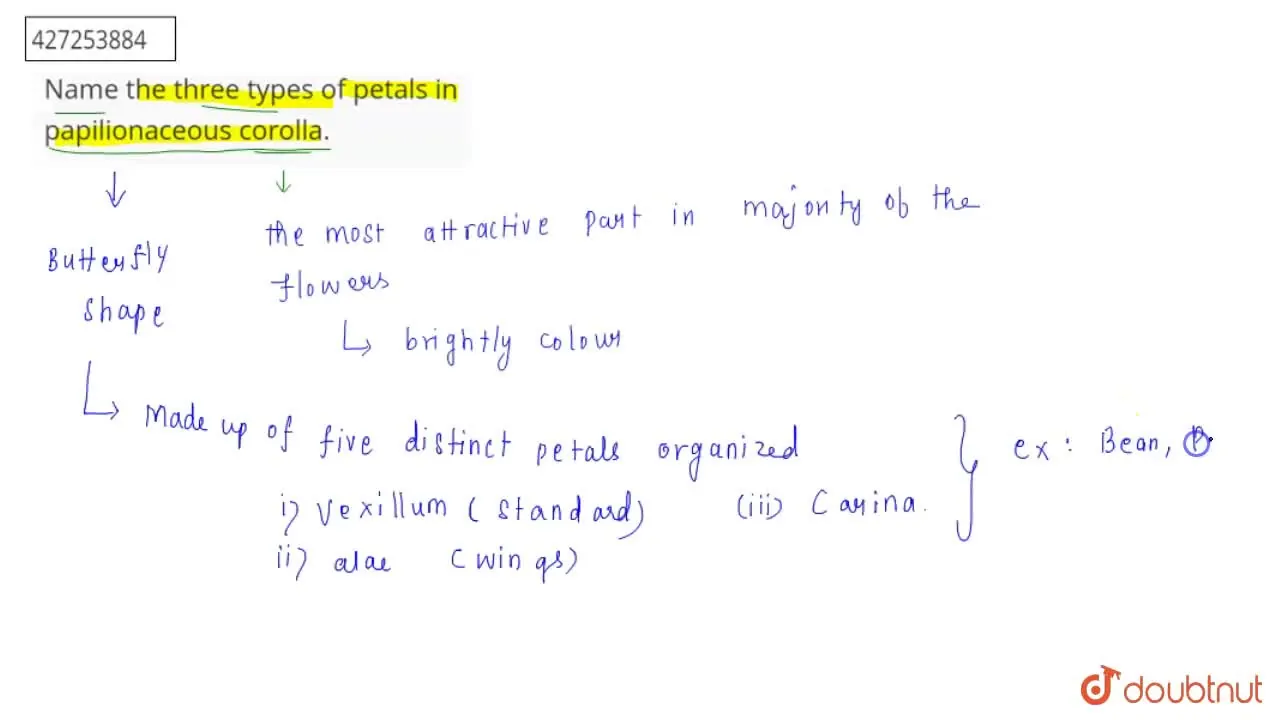 427253884
Name the three types of petals in
papilionaceous corolla.
Butterfly
shape
the most attractive part in majority of the
flowers
brightly colour
Made up of five distinct petals organized
i) Vexillum (standard)
(iii) Carina.
ii) alae (wings)
ex: Bean,
doubtnut